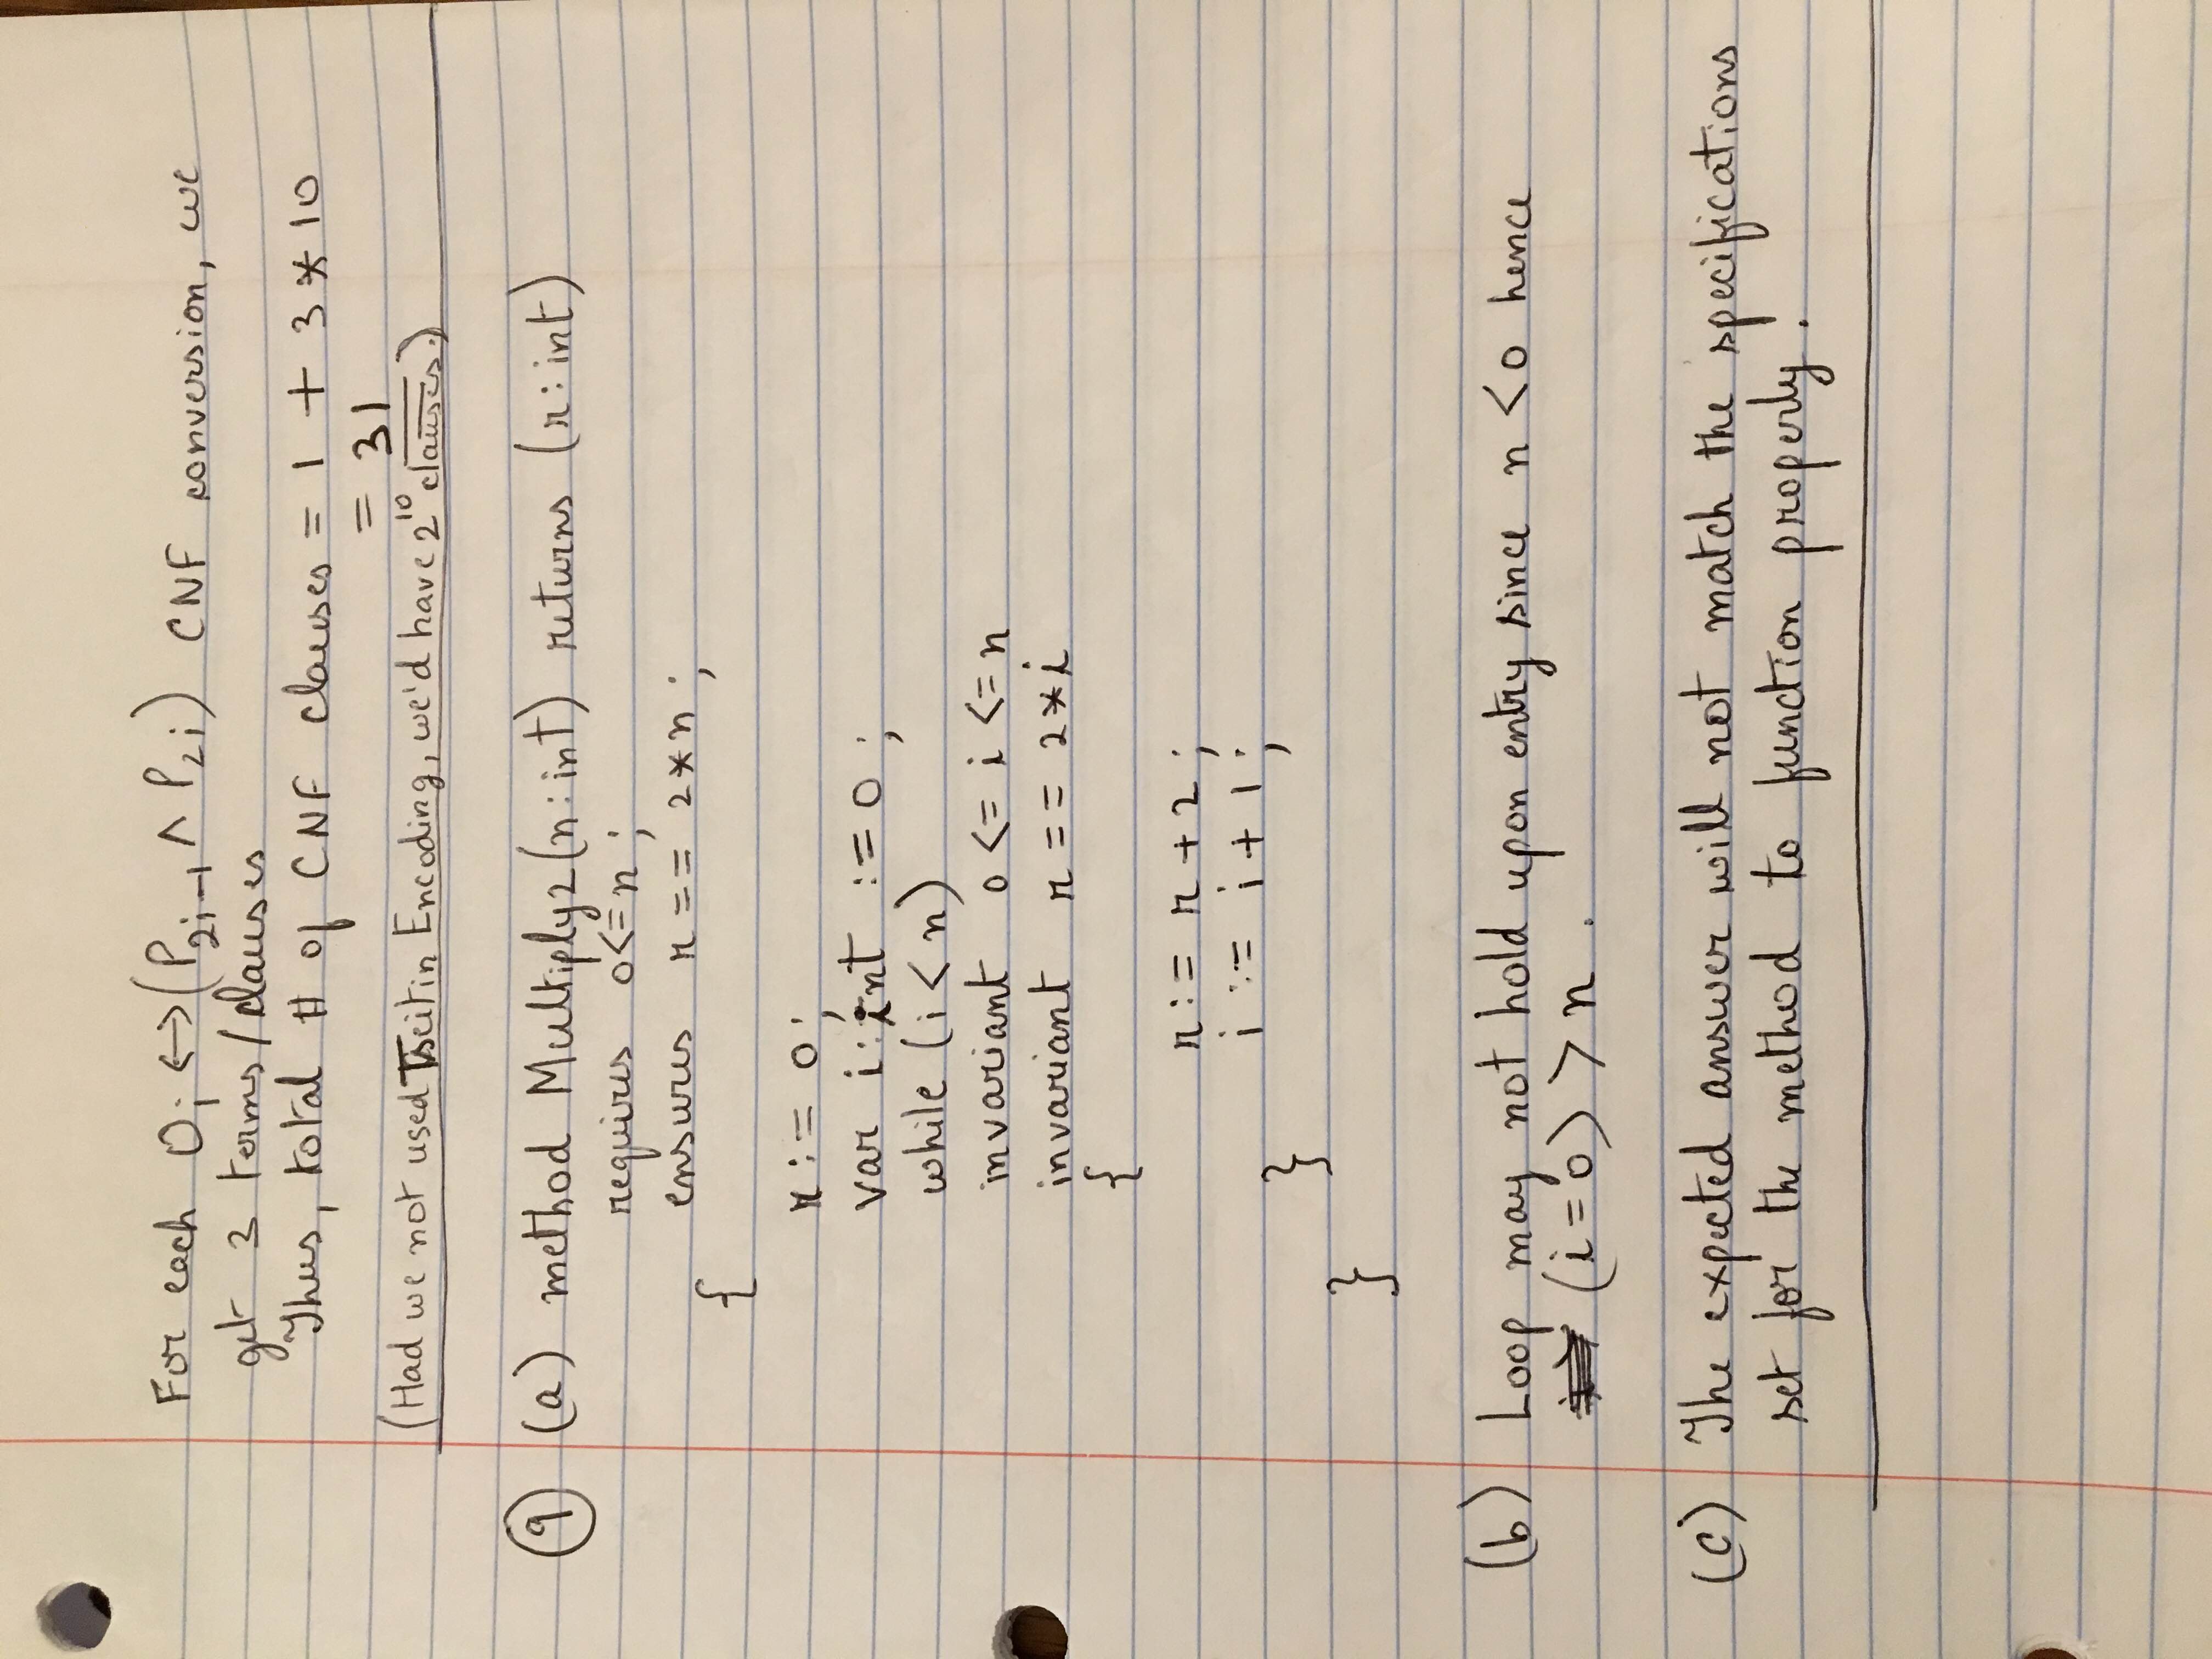 For each O_i ↔ (P_{2i-1} ∧ P_{2i}) CNF conversion, we
get 3 terms/clauses
Thus, total # of CNF clauses = 1 + 3 * 10
= 31
(Had we not used Tseitin Encoding, we'd have 2^{10} clauses.)
9 (a) method Multiply2(n:int) returns (r:int)
requires 0<=n;
ensures r == 2*n;
{
r := 0;
var i:int := 0;
while (i < n)
invariant 0 <= i <= n
invariant r == 2*i
{
r := r + 2;
i := i + 1;
}
}
(b) Loop may not hold upon entry since n < 0 hence
(i=0) > n.
(c) The expected answer will not match the specifications
set for the method to function properly.